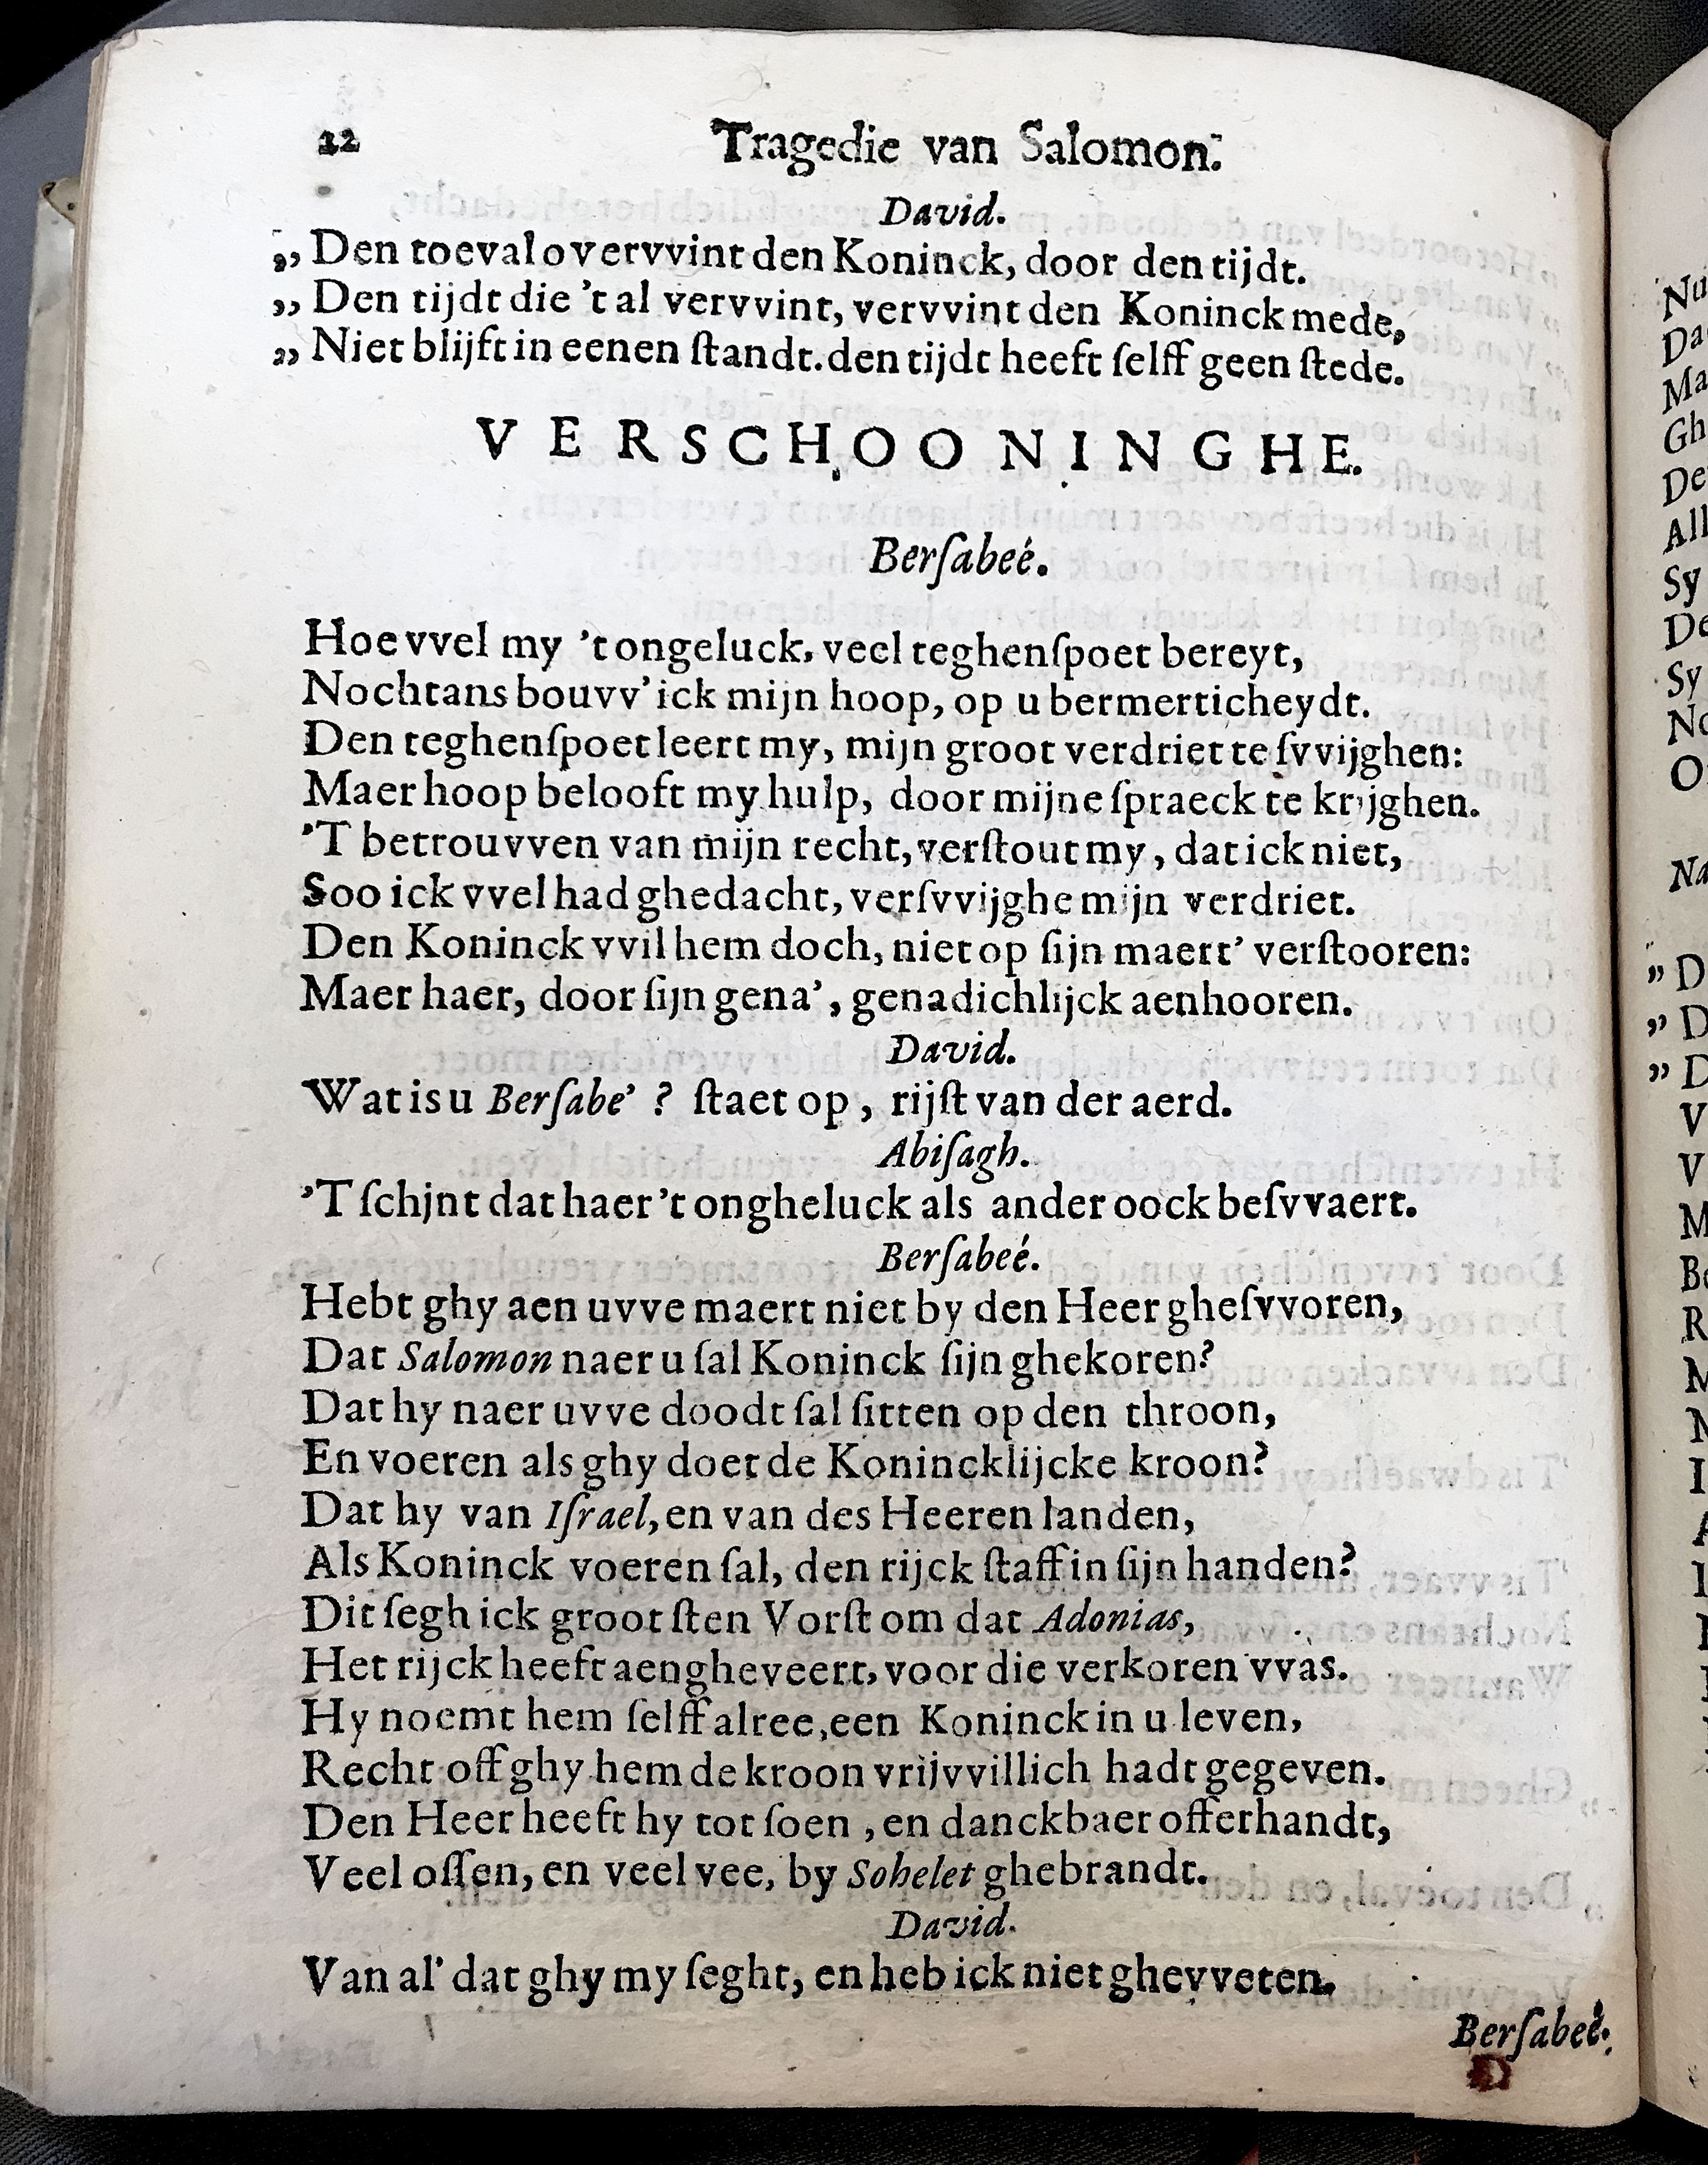 22 Tragedie van Salomon.
David.
„ Den toeval overvvint den Koninck, door den tijdt.
„ Den tijdt die 't al vervvint, vervvint den Koninck mede,
„ Niet blijft in eenen ſtandt. den tijdt heeft ſelff geen ſtede.
VERSCHOONINGHE.
Berſabeé.
Hoe vvel my 't ongeluck, veel teghenſpoet bereyt,
Nochtans bouvv' ick mijn hoop, op u bermerticheydt.
Den teghenſpoet leert my, mijn groot verdriet te ſvvijghen:
Maer hoop belooft my hulp, door mijne ſpraeck te krijghen.
'T betrouvven van mijn recht, verſtout my, dat ick niet,
Soo ick vvel had ghedacht, verſvvijghe mijn verdriet.
Den Koninck vvil hem doch, niet op ſijn maert' verſtooren:
Maer haer, door ſijn gena', genadichlijck aenhooren.
David.
Wat is u Berſabe' ? ſtaet op, rijſt van der aerd.
Abiſagh.
'T ſchjnt dat haer 't ongheluck als ander oock beſvvaert.
Berſabeé.
Hebt ghy aen uvve maert niet by den Heer gheſvvoren,
Dat Salomon naer u ſal Koninck ſijn ghekoren?
Dat hy naer uvve doodt ſal ſitten op den throon,
En voeren als ghy doet de Konincklijcke kroon?
Dat hy van Iſrael, en van des Heeren landen,
Als Koninck voeren ſal, den rijck ſtaff in ſijn handen?
Dit ſegh ick groot ſten Vorſt om dat Adonias,
Het rijck heeft aengheveert, voor die verkoren vvas.
Hy noemt hem ſelff alree, een Koninck in u leven,
Recht off ghy hem de kroon vrijvvillich hadt gegeven.
Den Heer heeft hy tot ſoen, en danckbaer offerhandt,
Veel oſſen, en veel vee, by Sohelet ghebrandt.
David.
Van al' dat ghy my ſeght, en heb ick niet ghevveten.
Berſabeé.
D